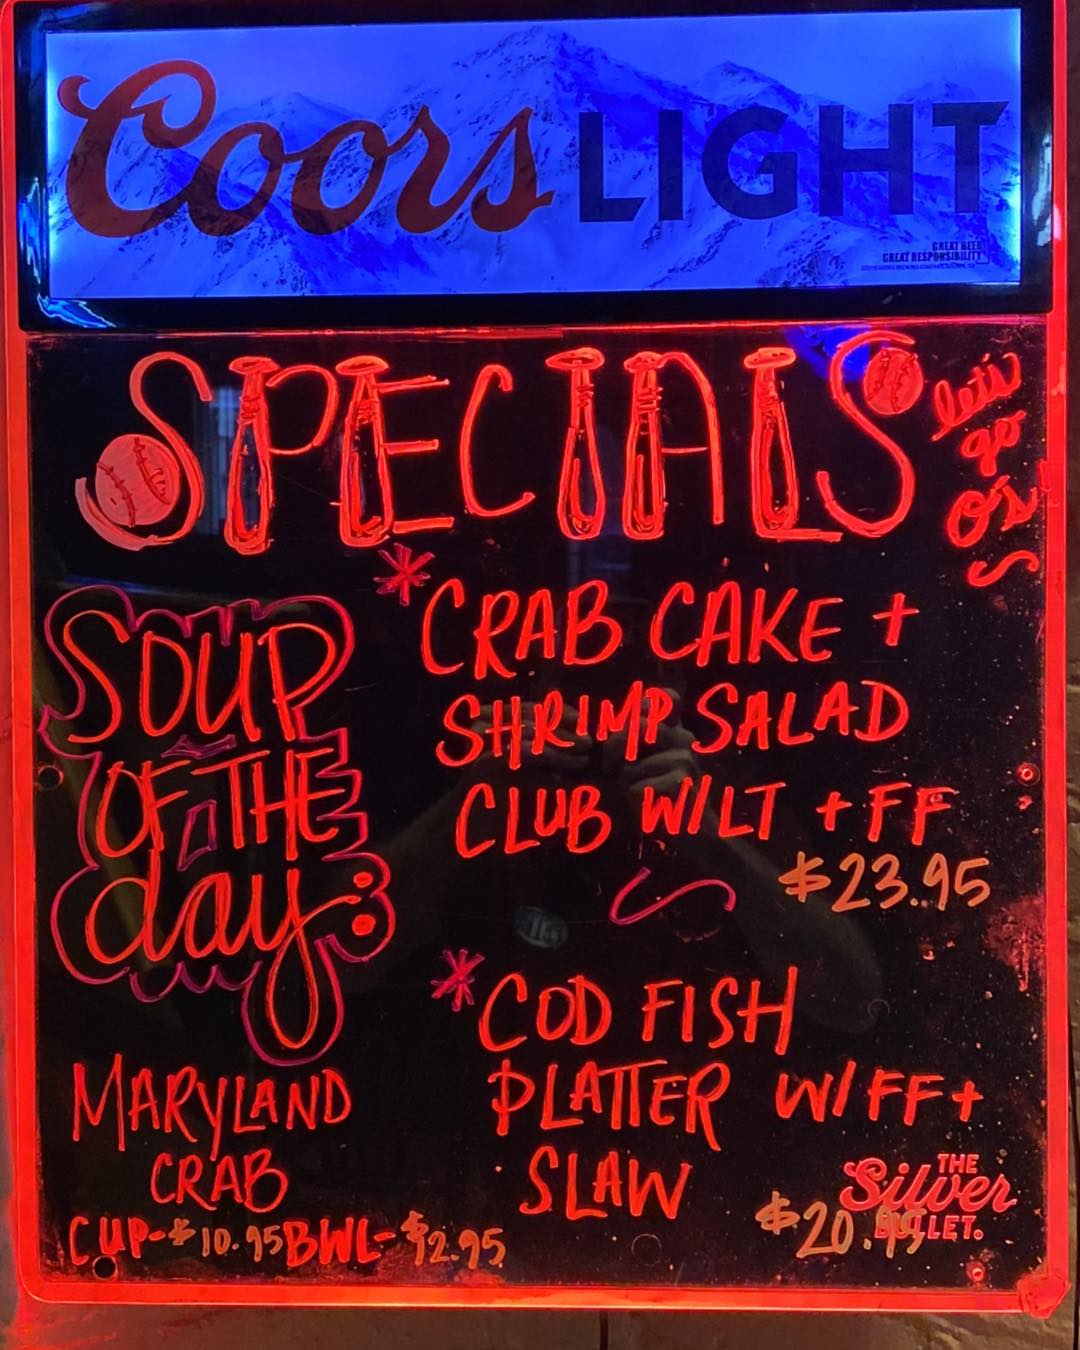 Coors LIGHT
GREAT BEER
GREAT RESPONSIBILITY
SPECIALS
let's
go
O's
SOUP
OF THE
day:
MARYLAND
CRAB
CUP-$10.95 BWL-$12.95
*CRAB CAKE +
SHRIMP SALAD
CLUB W/LT + FF
$23.95
*COD FISH
PLATTER W/FF+
SLAW
$20.95
THE
Silver
BULLET.